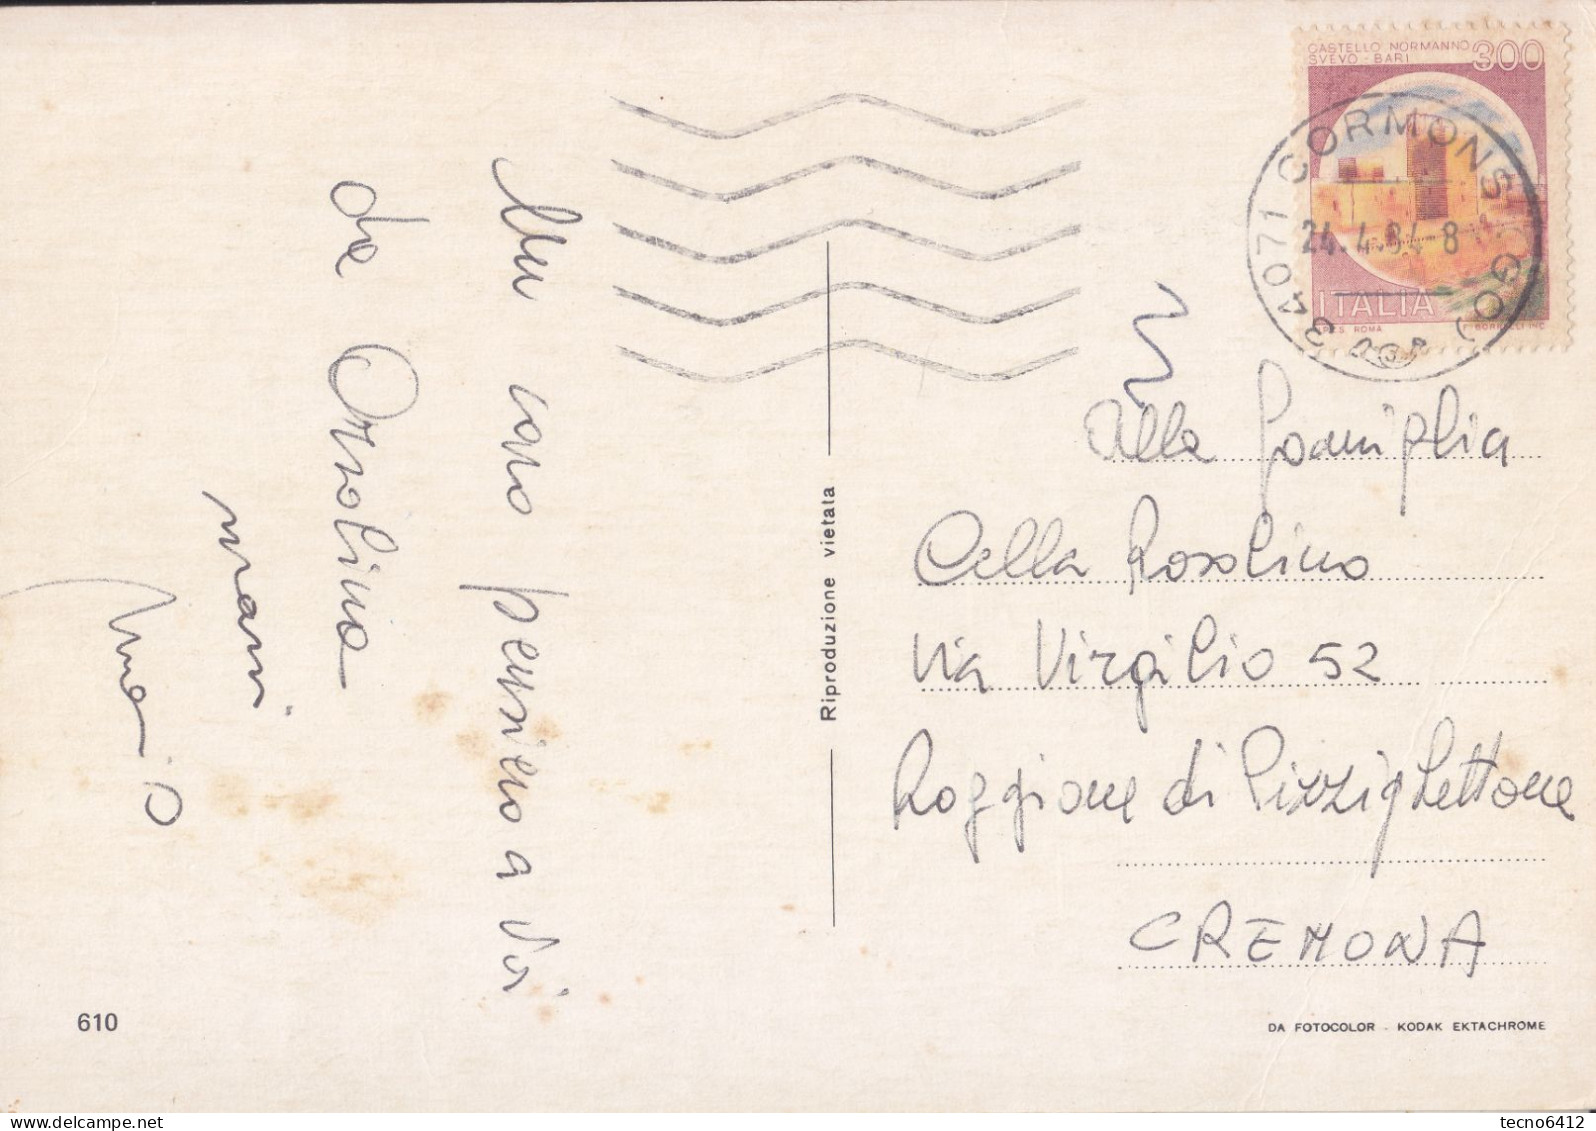 CASTELLO NORMANNO
SVEVO - BARI
300
34071 CORMONS (GO)
24.4.84-8
ITALIA
I.P.S. ROMA
Un caro pensiero a Voi
da Orsolina
Riproduzione vietata
Alla Famiglia
Cella Rosolino
Via Virgilio 52
Roggione di Pizzighettone
CREMONA
610
DA FOTOCOLOR - KODAK EKTACHROME
tecno6412